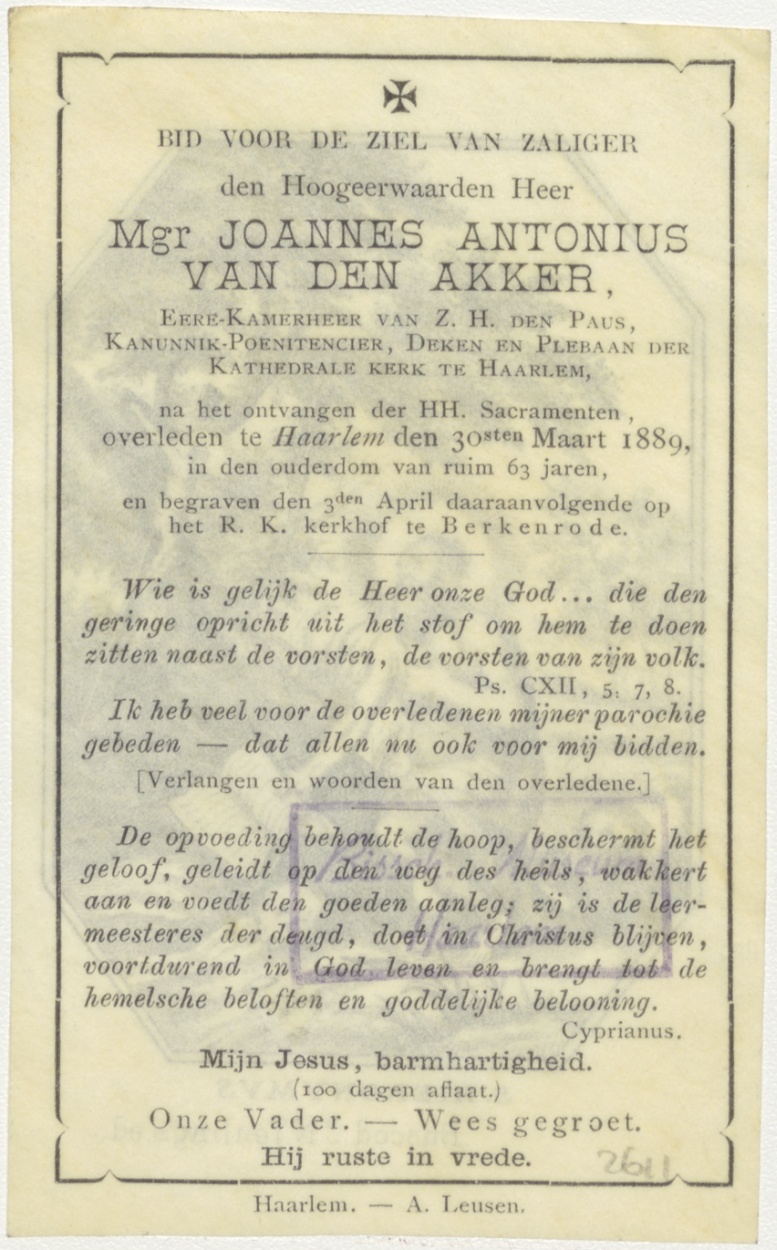 ✠
BID VOOR DE ZIEL VAN ZALIGER
den Hoogeerwaarden Heer
Mgr JOANNES ANTONIUS
VAN DEN AKKER,
EERE-KAMERHEER VAN Z. H. DEN PAUS,
KANUNNIK-POENITENCIER, DEKEN EN PLEBAAN DER
KATHEDRALE KERK TE HAARLEM,
na het ontvangen der HH. Sacramenten,
overleden te Haarlem den 30sten Maart 1889,
in den ouderdom van ruim 63 jaren,
en begraven den 3den April daaraanvolgende op
het R. K. kerkhof te Berkenrode.
Wie is gelijk de Heer onze God... die den
geringe opricht uit het stof om hem te doen
zitten naast de vorsten, de vorsten van zijn volk.
Ps. CXII, 5. 7, 8.
Ik heb veel voor de overledenen mijner parochie
gebeden — dat allen nu ook voor mij bidden.
[Verlangen en woorden van den overledene.]
De opvoeding behoudt de hoop, beschermt het
geloof, geleidt op den weg des heils, wakkert
aan en voedt den goeden aanleg; zij is de leer-
meesteres der deugd, doet in Christus blijven,
voortdurend in God leven en brengt tot de
hemelsche beloften en goddelijke belooning.
Cyprianus.
Mijn Jesus, barmhartigheid.
(100 dagen aflaat.)
Onze Vader. — Wees gegroet.
Hij ruste in vrede.
2611
Haarlem. — A. Leusen.